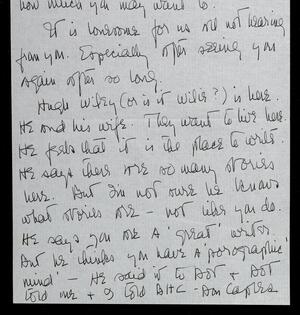 how much you may want to.
It is lonesome for us all not hearing
from you. Especially after seeing you
again after so long.
Hugh Wiley (or is it Wilie?) is here.
He and his wife. They want to live here.
He feels that it is the place to write.
He says there are so many stories
here. But I'm not sure he knows
what stories are – not like you do.
He says you are a 'great' writer.
But he thinks you have a 'pornographic
mind' – He said it to Dot & Dot
told me & I told